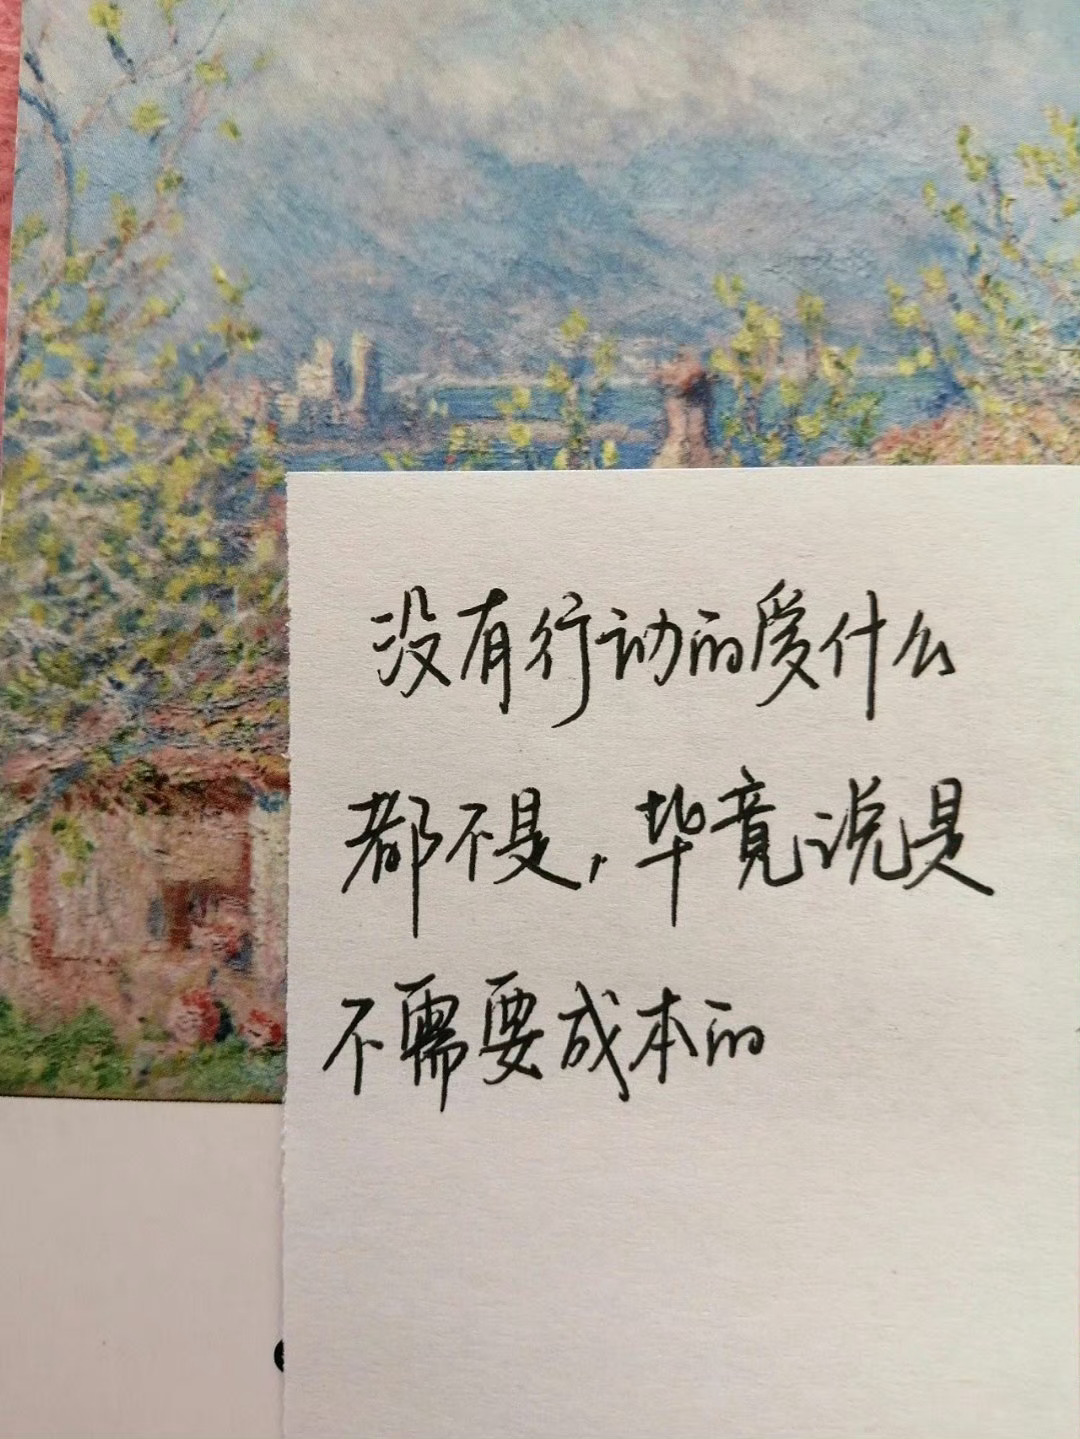 没有行动的爱什么
都不是，毕竟说是
不需要成本的